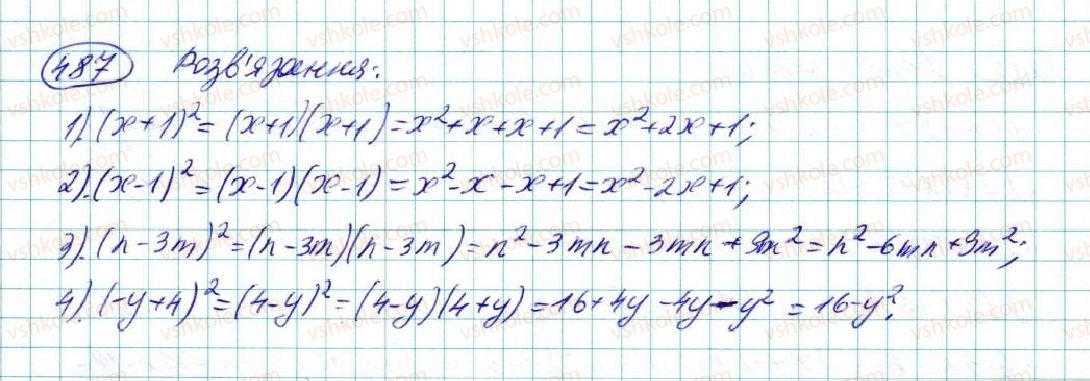 487 Розв'язання:
1). (x+1)² = (x+1)(x+1) = x²+x+x+1 = x²+2x+1;
2). (x-1)² = (x-1)(x-1) = x²-x-x+1 = x²-2x+1;
3). (n-3m)² = (n-3m)(n-3m) = n²-3mn-3mn+9m² = n²-6mn+9m²;
4). (-y+4)² = (4-y)² = (4-y)(4+y) = 16+4y-4y-y² = 16-y².